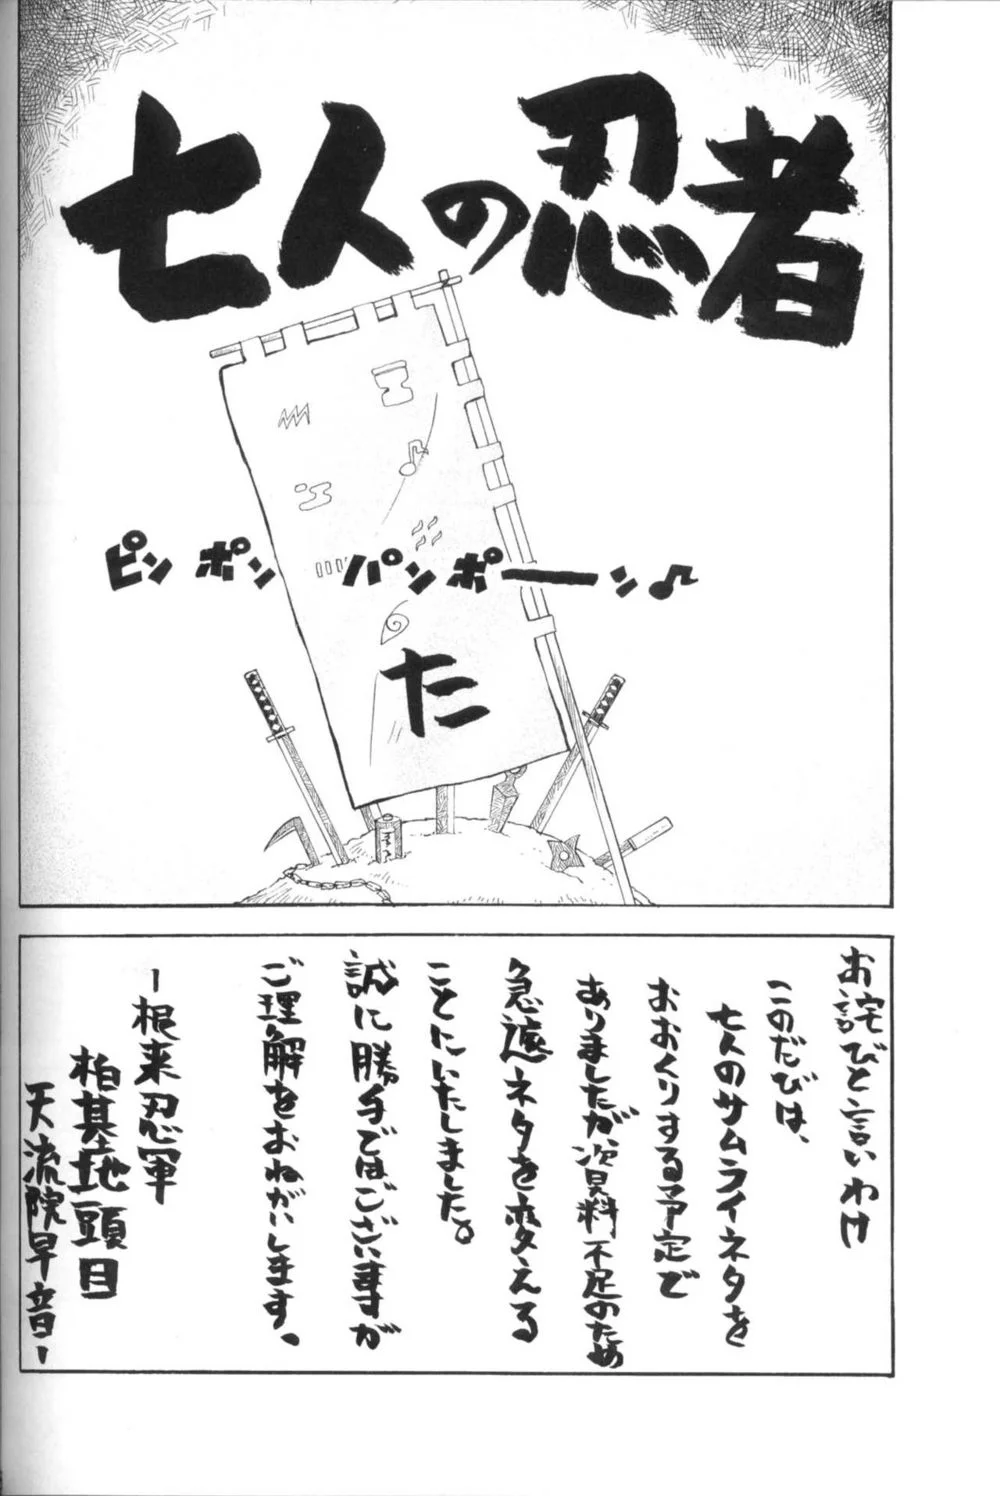 七人の忍者
ピンポンパンポーン♪
た
お詫びと言いわけ
このたびは、
七人のサムライネタを
おおくりする予定で
ありましたが資料不足のため
急遽ネタを変える
ことにいたしました。
誠に勝手ではございますが
ご理解をおねがいします。
ー根来忍軍
柏基地頭目
天流院早音ー